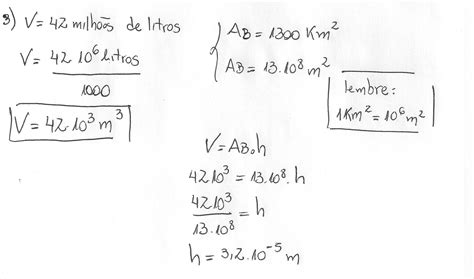 3) V = 42 milhões de litros
V = 42 10⁶ litros
1000
V = 42.10³ m³
AB = 1300 Km²
AB = 13.10⁸ m²
lembre:
1Km² = 10⁶ m²
V = AB.h
42 10³ = 13.10⁸. h
42 10³ = h
13.10⁸
h = 3,2.10⁻⁵ m